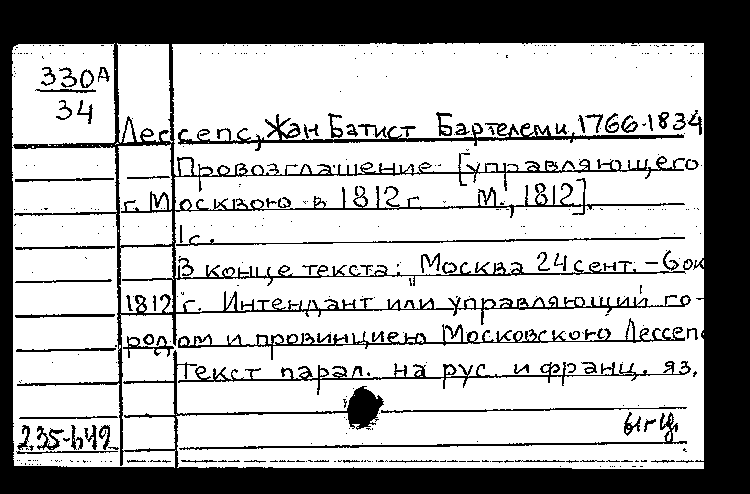 330А
34
Лессепс, Жан Батист Бартелеми, 1766-1834
Провозглашение [управляющего
г. Москвою в 1812 г. М., 1812].
1 с.
В конце текста: "Москва 24 сент. - 6 ок
1812 г. Интендант или управляющий го-
родом и провинциею Московского Лессепс
Текст парал. на рус. и франц. яз.
235-649